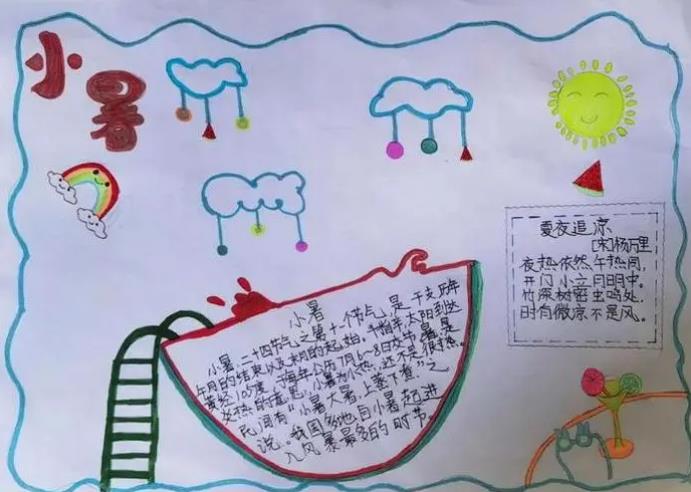 小暑
夏夜追凉
[宋]杨万里
夜热依然午热同,
开门小立月明中。
竹深树密虫鸣处,
时有微凉不是风。
小暑
小暑,二十四节气之第十一个节气,是干支历年
午月的结束以及未月的起始。太阳到达
黄经105度,于每年公历7月6-8日交节。暑,是
炎热的意思,小暑为小热,还不是很热。
民间有“小暑大暑,上蒸下煮”之
说。我国多地自小暑起进
入风暴最多的时节。